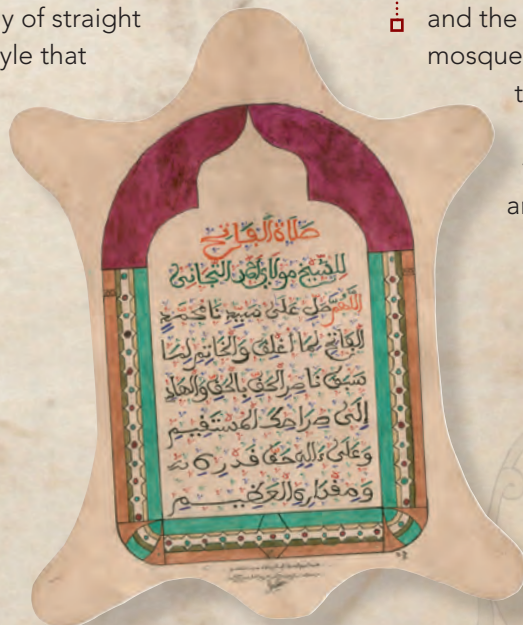 y of straight
yle that
and the
mosque
t
ar
صلاة الفاتح
للشيخ مولاي أحمد التجاني
اللهم صل على سيدنا محمد
الفاتح لما أغلق والخاتم لما
سبق ناصر الحق بالحق والهادي
إلى صراطك المستقيم
وعلى ءاله حق قدره
ومقداره العظيم